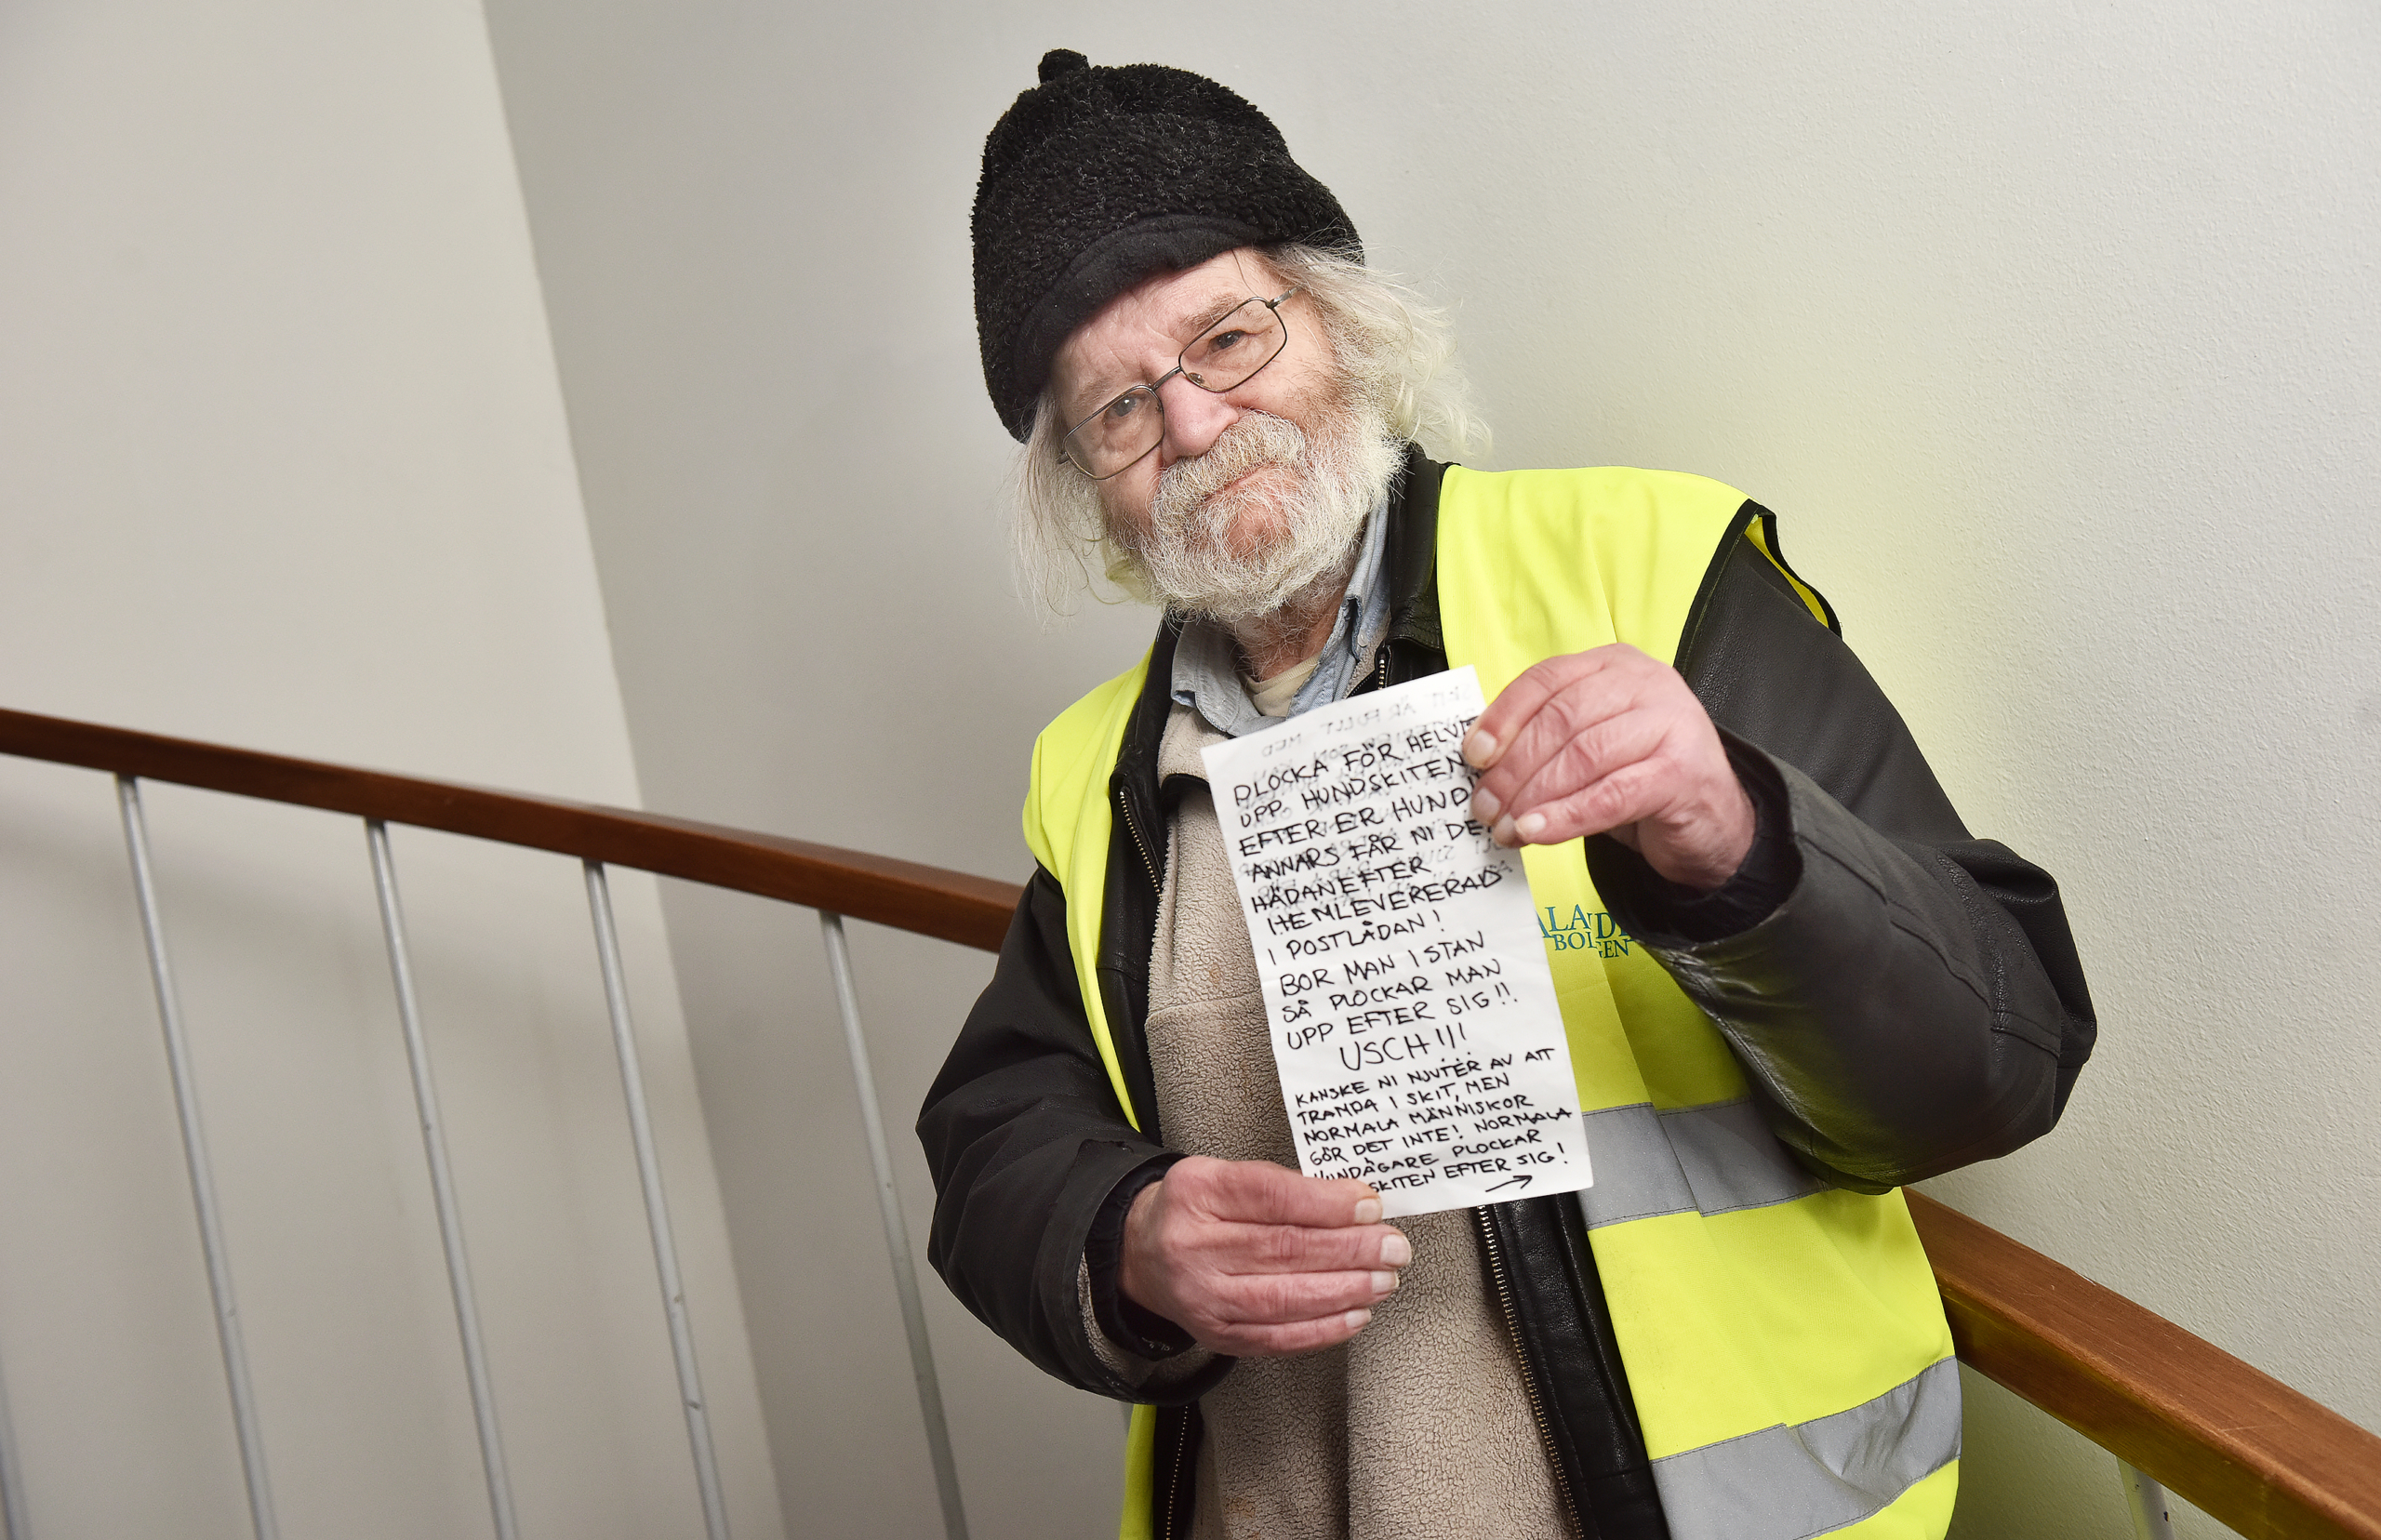 PLOCKA FÖR HELVE
UPP HUNDSKITEN
EFTER ER HUND!!
ANNARS FÅR NI DE
HÄDANEFTER
HEMLEVERERAD
I POSTLÅDAN!
BOR MAN I STAN
SÅ PLOCKAR MAN
UPP EFTER SIG!!
USCH!!!
KANSKE NI NJUTER AV ATT
TRAMPA I SKIT, MEN
NORMALA MÄNNISKOR
GÖR DET INTE! NORMALA
HUNDÄGARE PLOCKAR
SKITEN EFTER SIG!